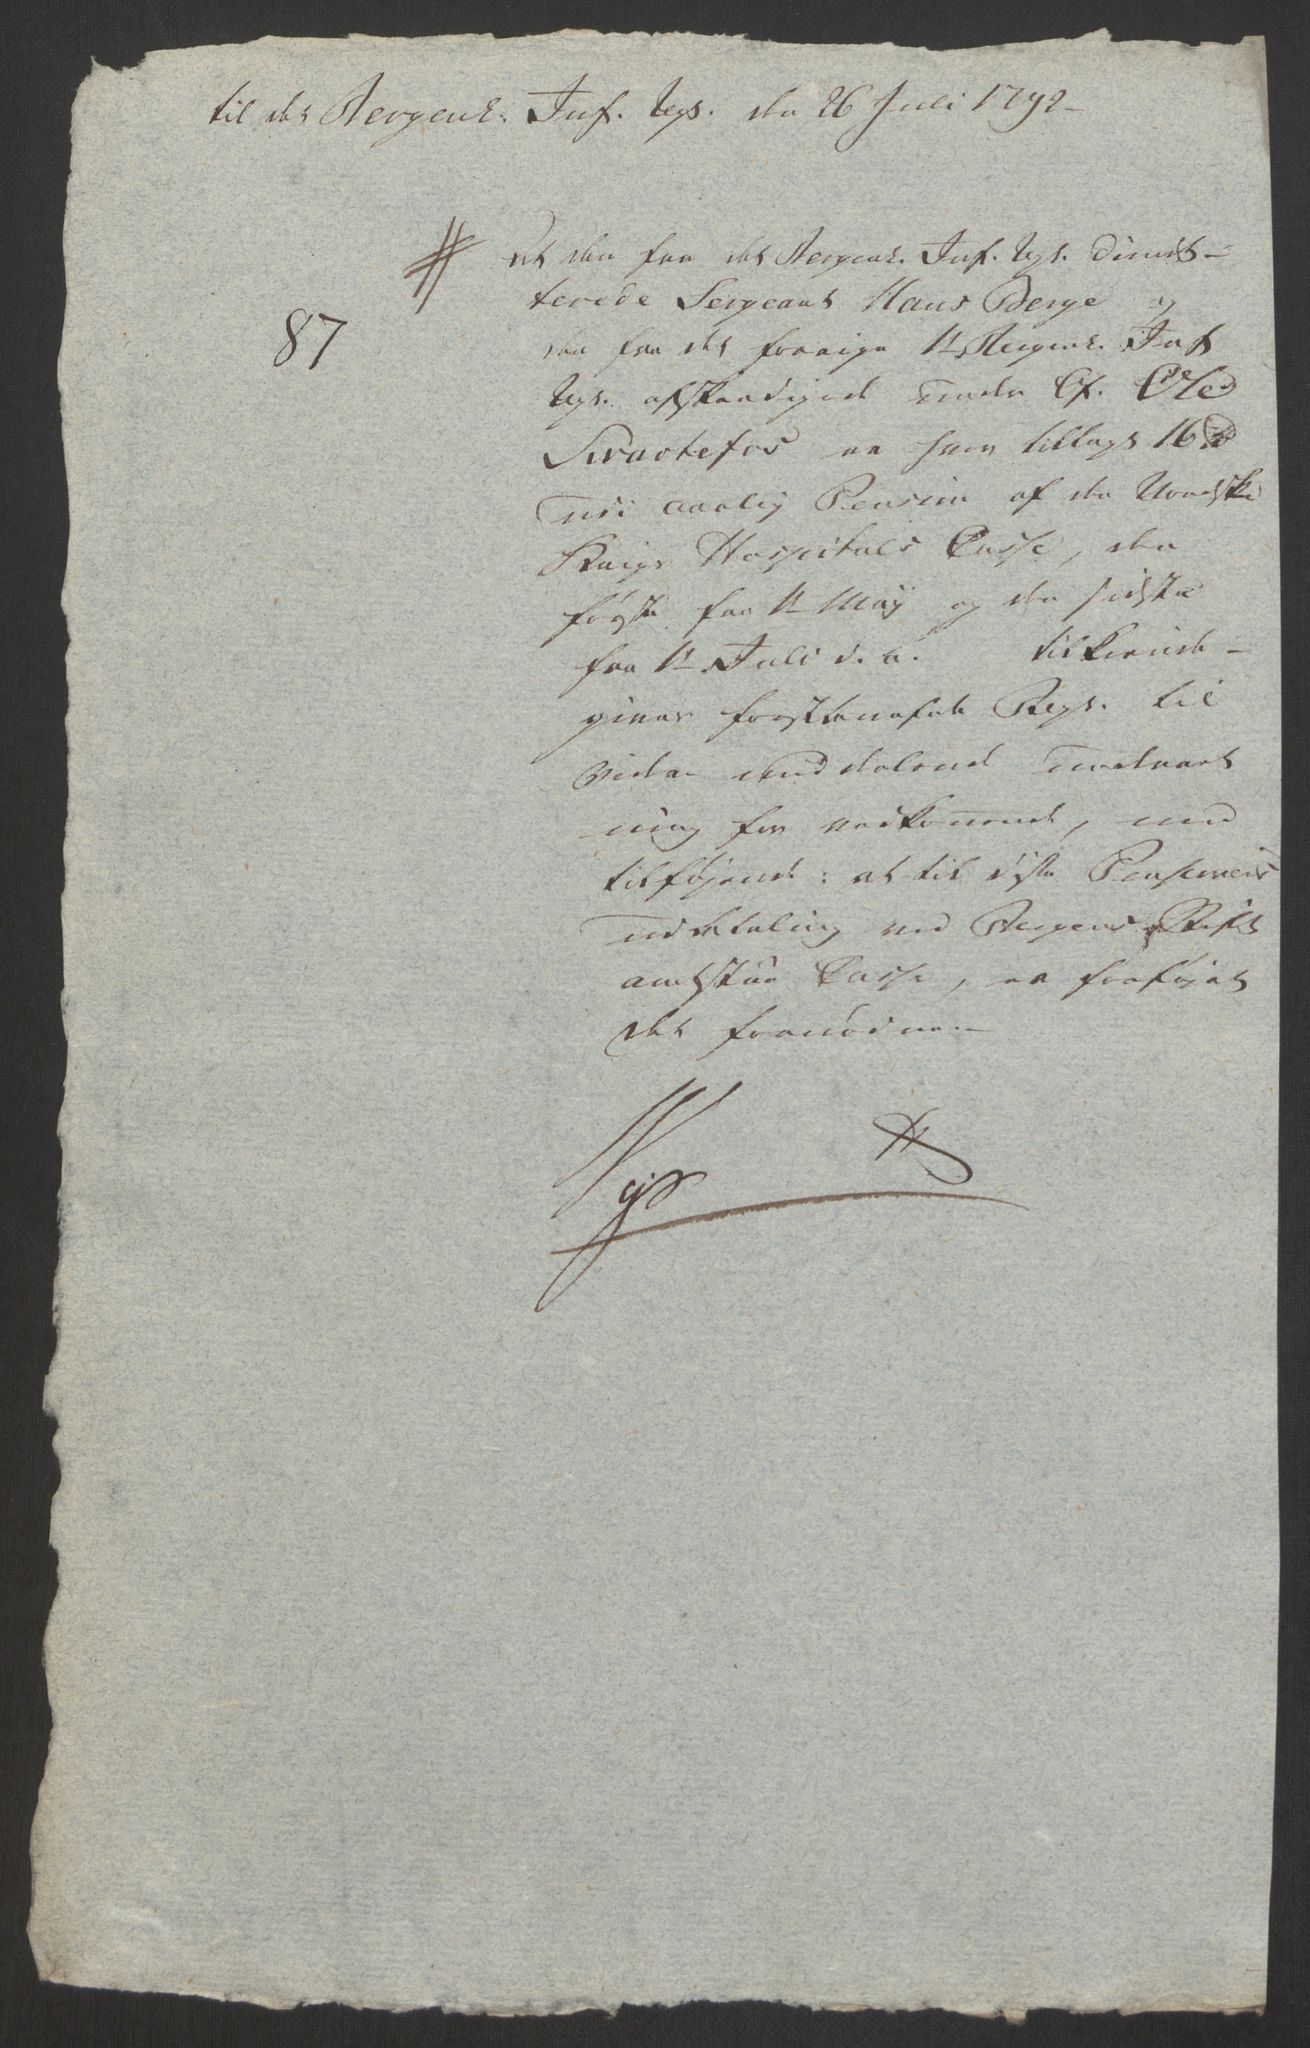 til det Bergens. Inf. Regs. den 26 Juli 1792
At den fra det Bergens. Inf. Regs. dimit-
terede Sergeant Hans Berge og
87
den fra det forrige 1te Bergens. Inf
Regs. afskeedigede under Of. Ole
Svartefos er hver tillagt 16 rd
aarlig Pension af den Norske
Krigs Hospitals Casse, den
første fra 1te May og den sidste
fra 1te Juli d. a. tilkiende-
gives førstbenefnte Regs. til
videre meddelende
ning for vedkommende, med
tilføjende: at til disse Pensioners
udbetaling ved Bergens Stifts
amtstue Casse, er forføjet
det fornødne.